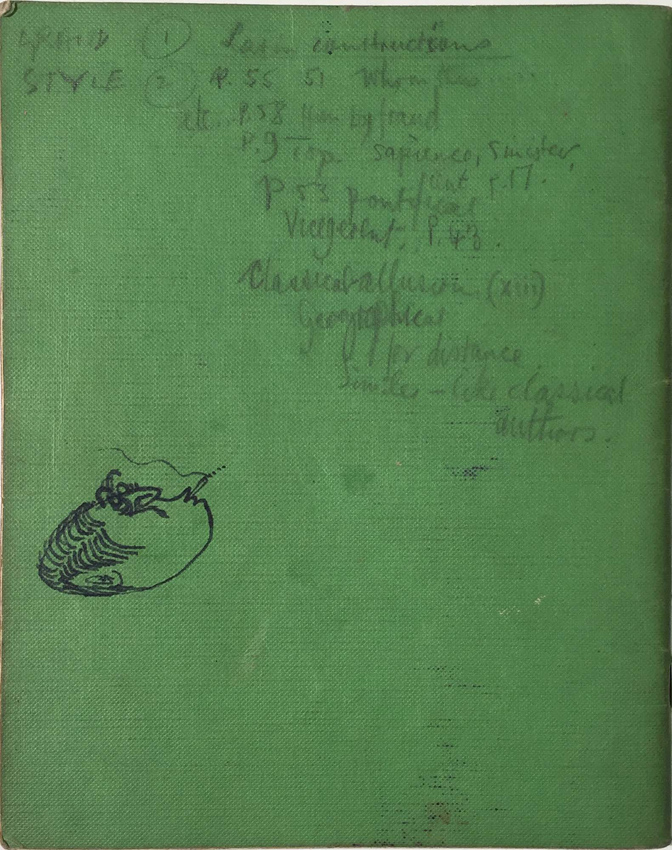 GRAND ① Latin constructions
STYLE ② P. 55 51 Whom thus
etc. P.58 Him by fraud
P.9 Top. Sapience, Sinister,
P 53 pontifical P.17.
Vicegerent, P.43.
Classical allusion (xiii)
Geographical
for distance
Similes – like classical
authors.